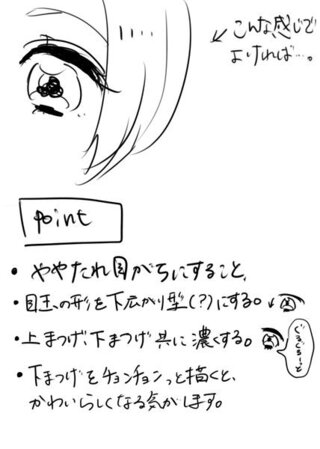 こんな感じで
よければ…。
point
・ややたれ目がちにすること、
・目玉の形を下広がり型(?)にする。
・上まつげ、下まつげ共に濃くする。
ぐるぐるーっと
・下まつげをチョンチョンっと描くと、
かわいらしくなる気がします。